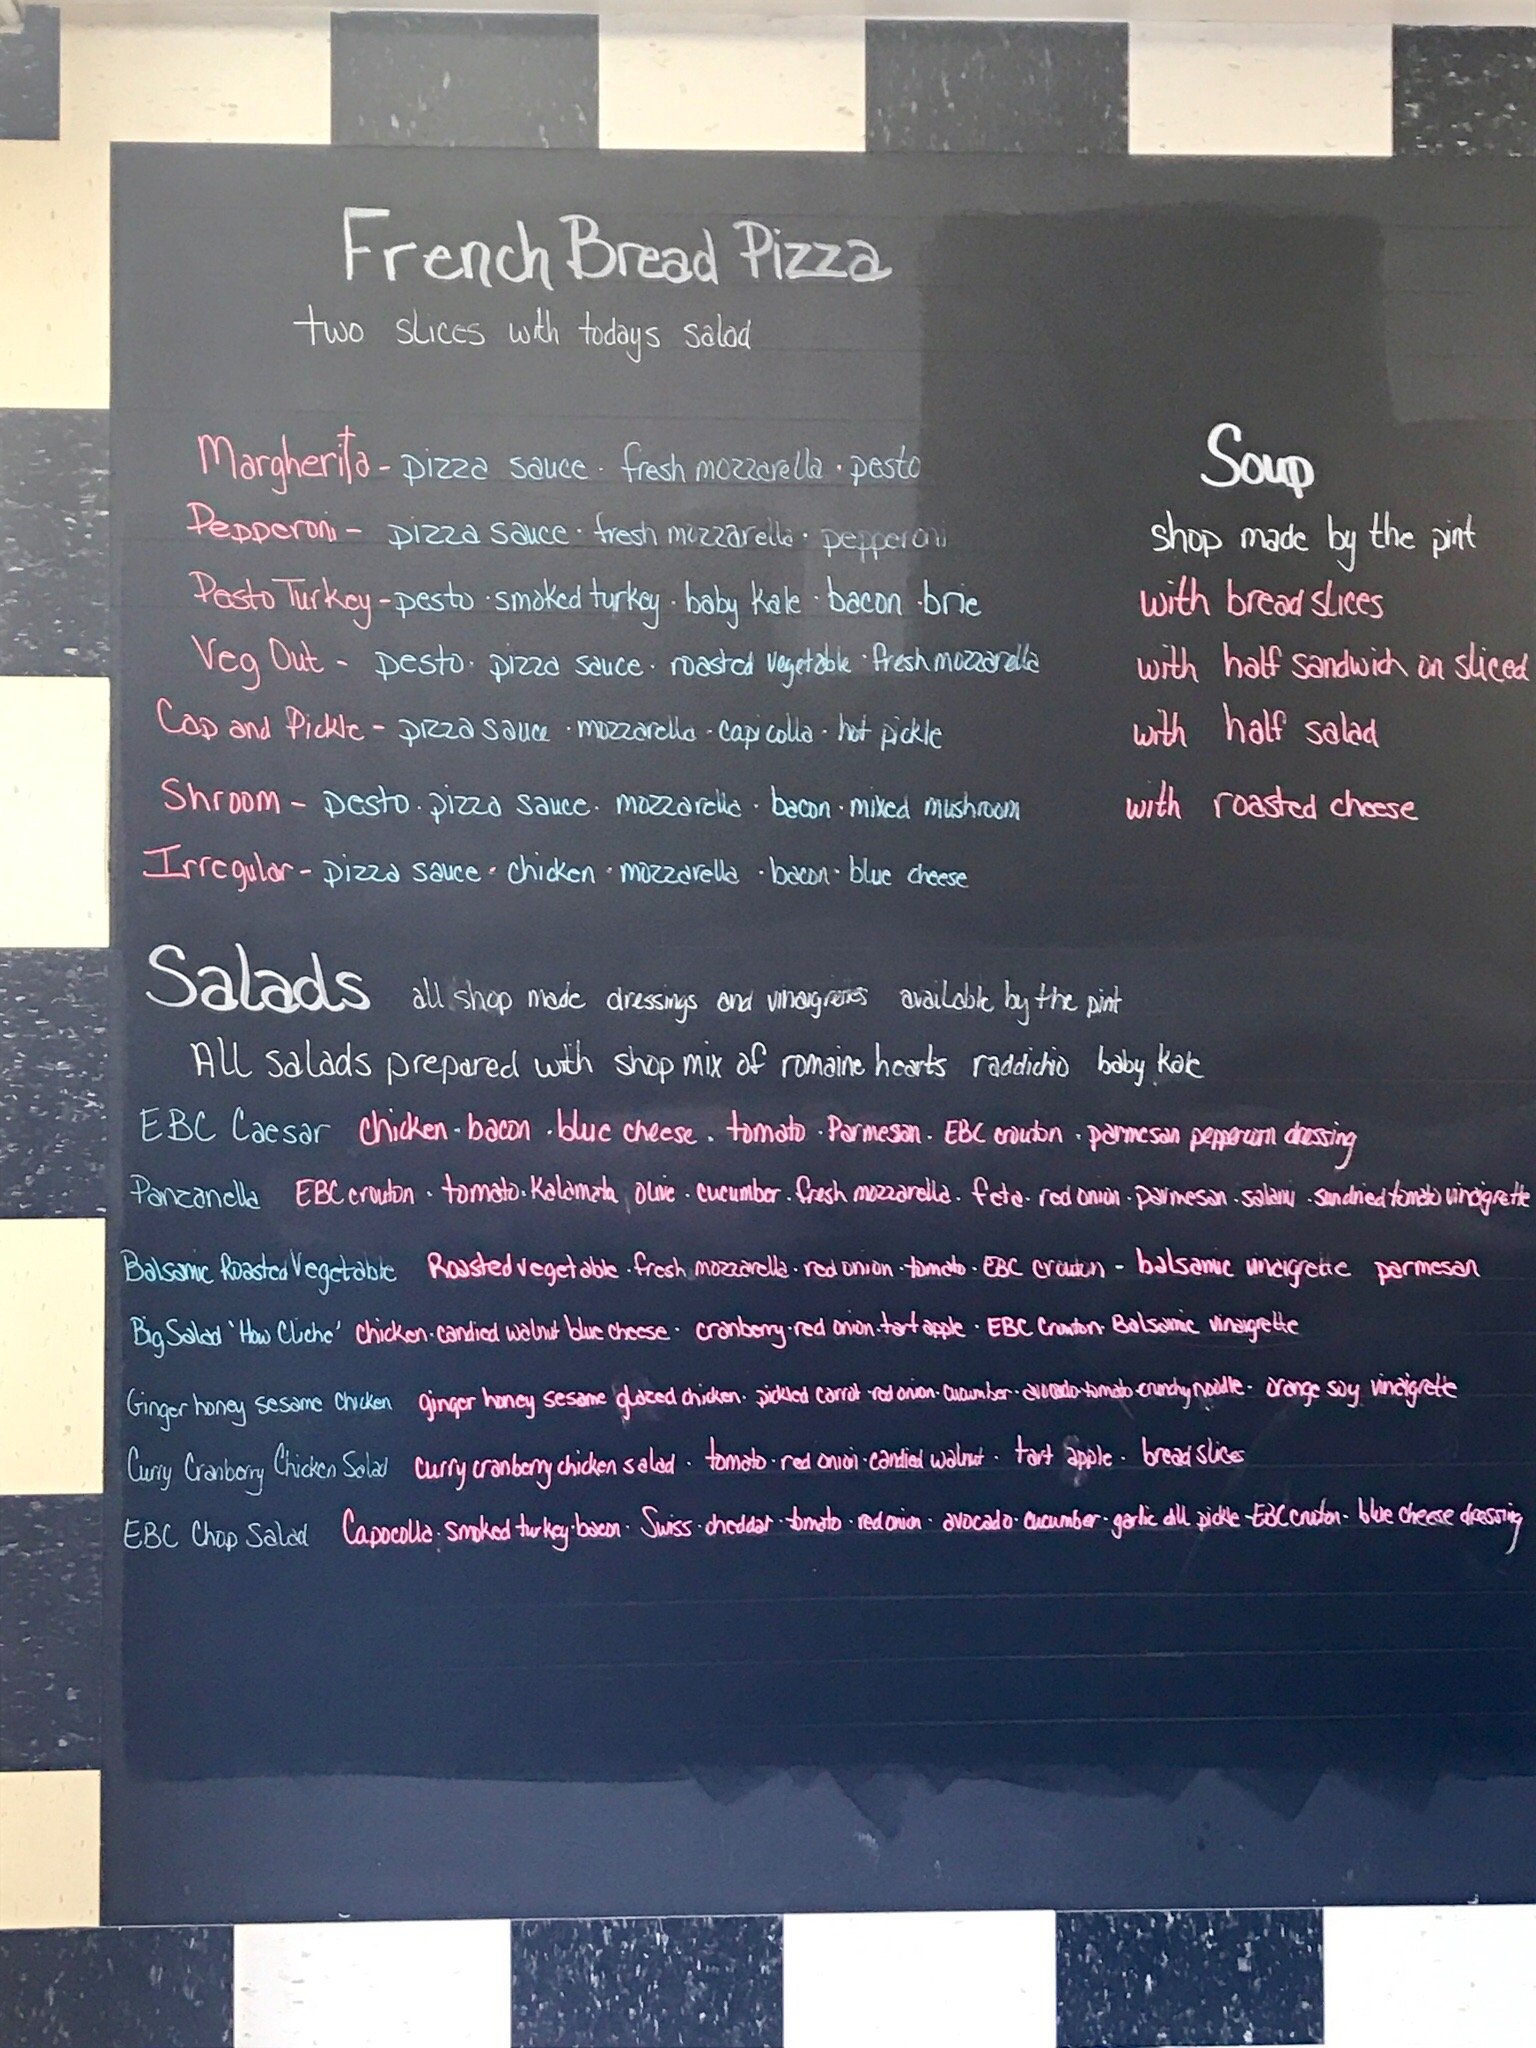 French Bread Pizza
two slices with todays salad
Margherita - pizza sauce · fresh mozzarella · pesto
Pepperoni - pizza sauce · fresh mozzarella · pepperoni
Pesto Turkey - pesto · smoked turkey · baby kale · bacon · brie
Veg Out - pesto · pizza sauce · roasted vegetable · fresh mozzarella
Cap and Pickle - pizza sauce · mozzarella · capicolla · hot pickle
Shroom - pesto · pizza sauce · mozzarella · bacon · mixed mushroom
Irregular - pizza sauce · chicken · mozzarella · bacon · blue cheese
Soup
shop made by the pint
with bread slices
with half sandwich on sliced
with half salad
with roasted cheese
Salads all shop made dressings and vinaigrettes available by the pint
All salads prepared with shop mix of romaine hearts raddichio baby kale
EBC Caesar chicken · bacon · blue cheese · tomato · Parmesan · EBC crouton · parmesan peppercorn dressing
Panzanella EBC crouton · tomato · Kalamata olive · cucumber · fresh mozzarella · feta · red onion · parmesan · salami · sundried tomato vinaigrette
Balsamic Roasted Vegetable Roasted vegetable · fresh mozzarella · red onion · tomato · EBC crouton - balsamic vinaigrette parmesan
Big Salad 'How Cliche' chicken · candied walnut blue cheese · cranberry · red onion · tart apple · EBC Crouton · Balsamic vinaigrette
Ginger honey sesame chicken ginger honey sesame glazed chicken · pickled carrot · red onion · cucumber · avocado · tomato · crunchy noodle · orange soy vinaigrette
Curry Cranberry Chicken Salad curry cranberry chicken salad · tomato · red onion · candied walnut · tart apple · bread slices
EBC Chop Salad Capocolla · smoked turkey · bacon · Swiss · cheddar · tomato · red onion · avocado · cucumber · garlic dill pickle - EBC crouton · blue cheese dressing